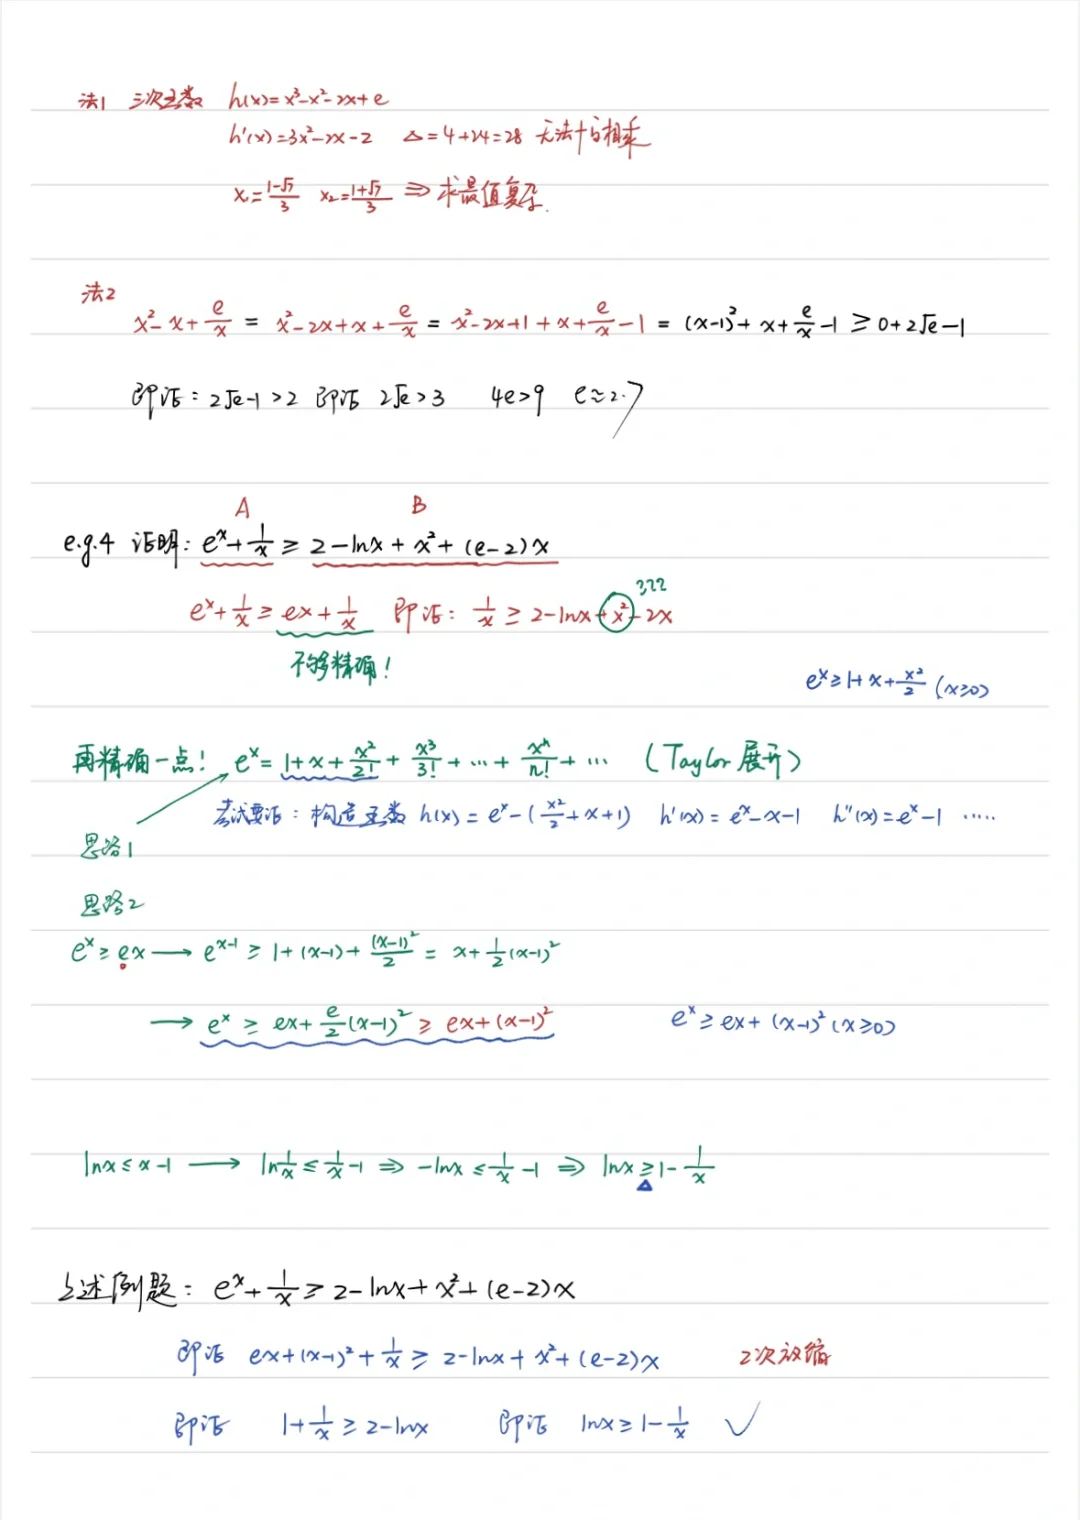 法1 三次函数 h(x)=x³-x²-2x+e
h'(x)=3x²-2x-2 Δ=4+24=28 无法十字相乘
x₁=(1-√7)/3 x₂=(1+√7)/3 ⇒ 求最值复杂.
法2
x²-x+e/x = x²-2x+x+e/x = x²-2x+1+x+e/x-1 = (x-1)²+x+e/x-1 ≥ 0+2√e-1
即证: 2√e-1>2 即证 2√e>3 4e>9 e≈2.7
A B
e.g.4 证明: eˣ+1/x ≥ 2-lnx+x²+(e-2)x
322
eˣ+1/x ≥ ex+1/x 即证: 1/x ≥ 2-lnx+x²-2x
不够精确!
eˣ≥1+x+x²/2 (x≥0)
再精确一点! eˣ=1+x+x²/2!+x³/3!+…+xⁿ/n!+… (Taylor展开)
考试要证: 构造函数 h(x)=eˣ-(x²/2+x+1) h'(x)=eˣ-x-1 h''(x)=eˣ-1 ……
思路1
思路2
eˣ≥ex → eˣ⁻¹ ≥ 1+(x-1)+(x-1)²/2 = x+1/2(x-1)²
→ eˣ ≥ ex+e/2(x-1)² ≥ ex+(x-1)² eˣ≥ex+(x-1)² (x≥0)
lnx≤x-1 → ln1/x≤1/x-1 ⇒ -lnx≤1/x-1 ⇒ lnx≥1-1/x
上述例题: eˣ+1/x ≥ 2-lnx+x²+(e-2)x
即证 ex+(x-1)²+1/x ≥ 2-lnx+x²+(e-2)x 2次放缩
即证 1+1/x ≥ 2-lnx 即证 lnx≥1-1/x ✓